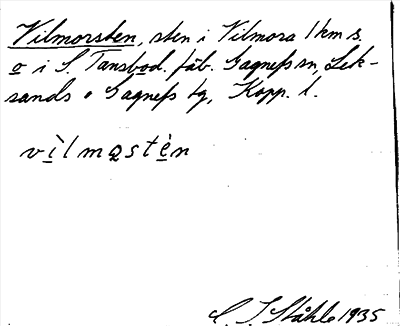 Vilmorsten, sten i Vilmora 1 km s.
o i S. Tansbod. fäb. Gagnefs sn, Lek-
sands o Gagnefs tg, Kopp. l.
vìlmɷstèn
C. I. Ståhle 1935